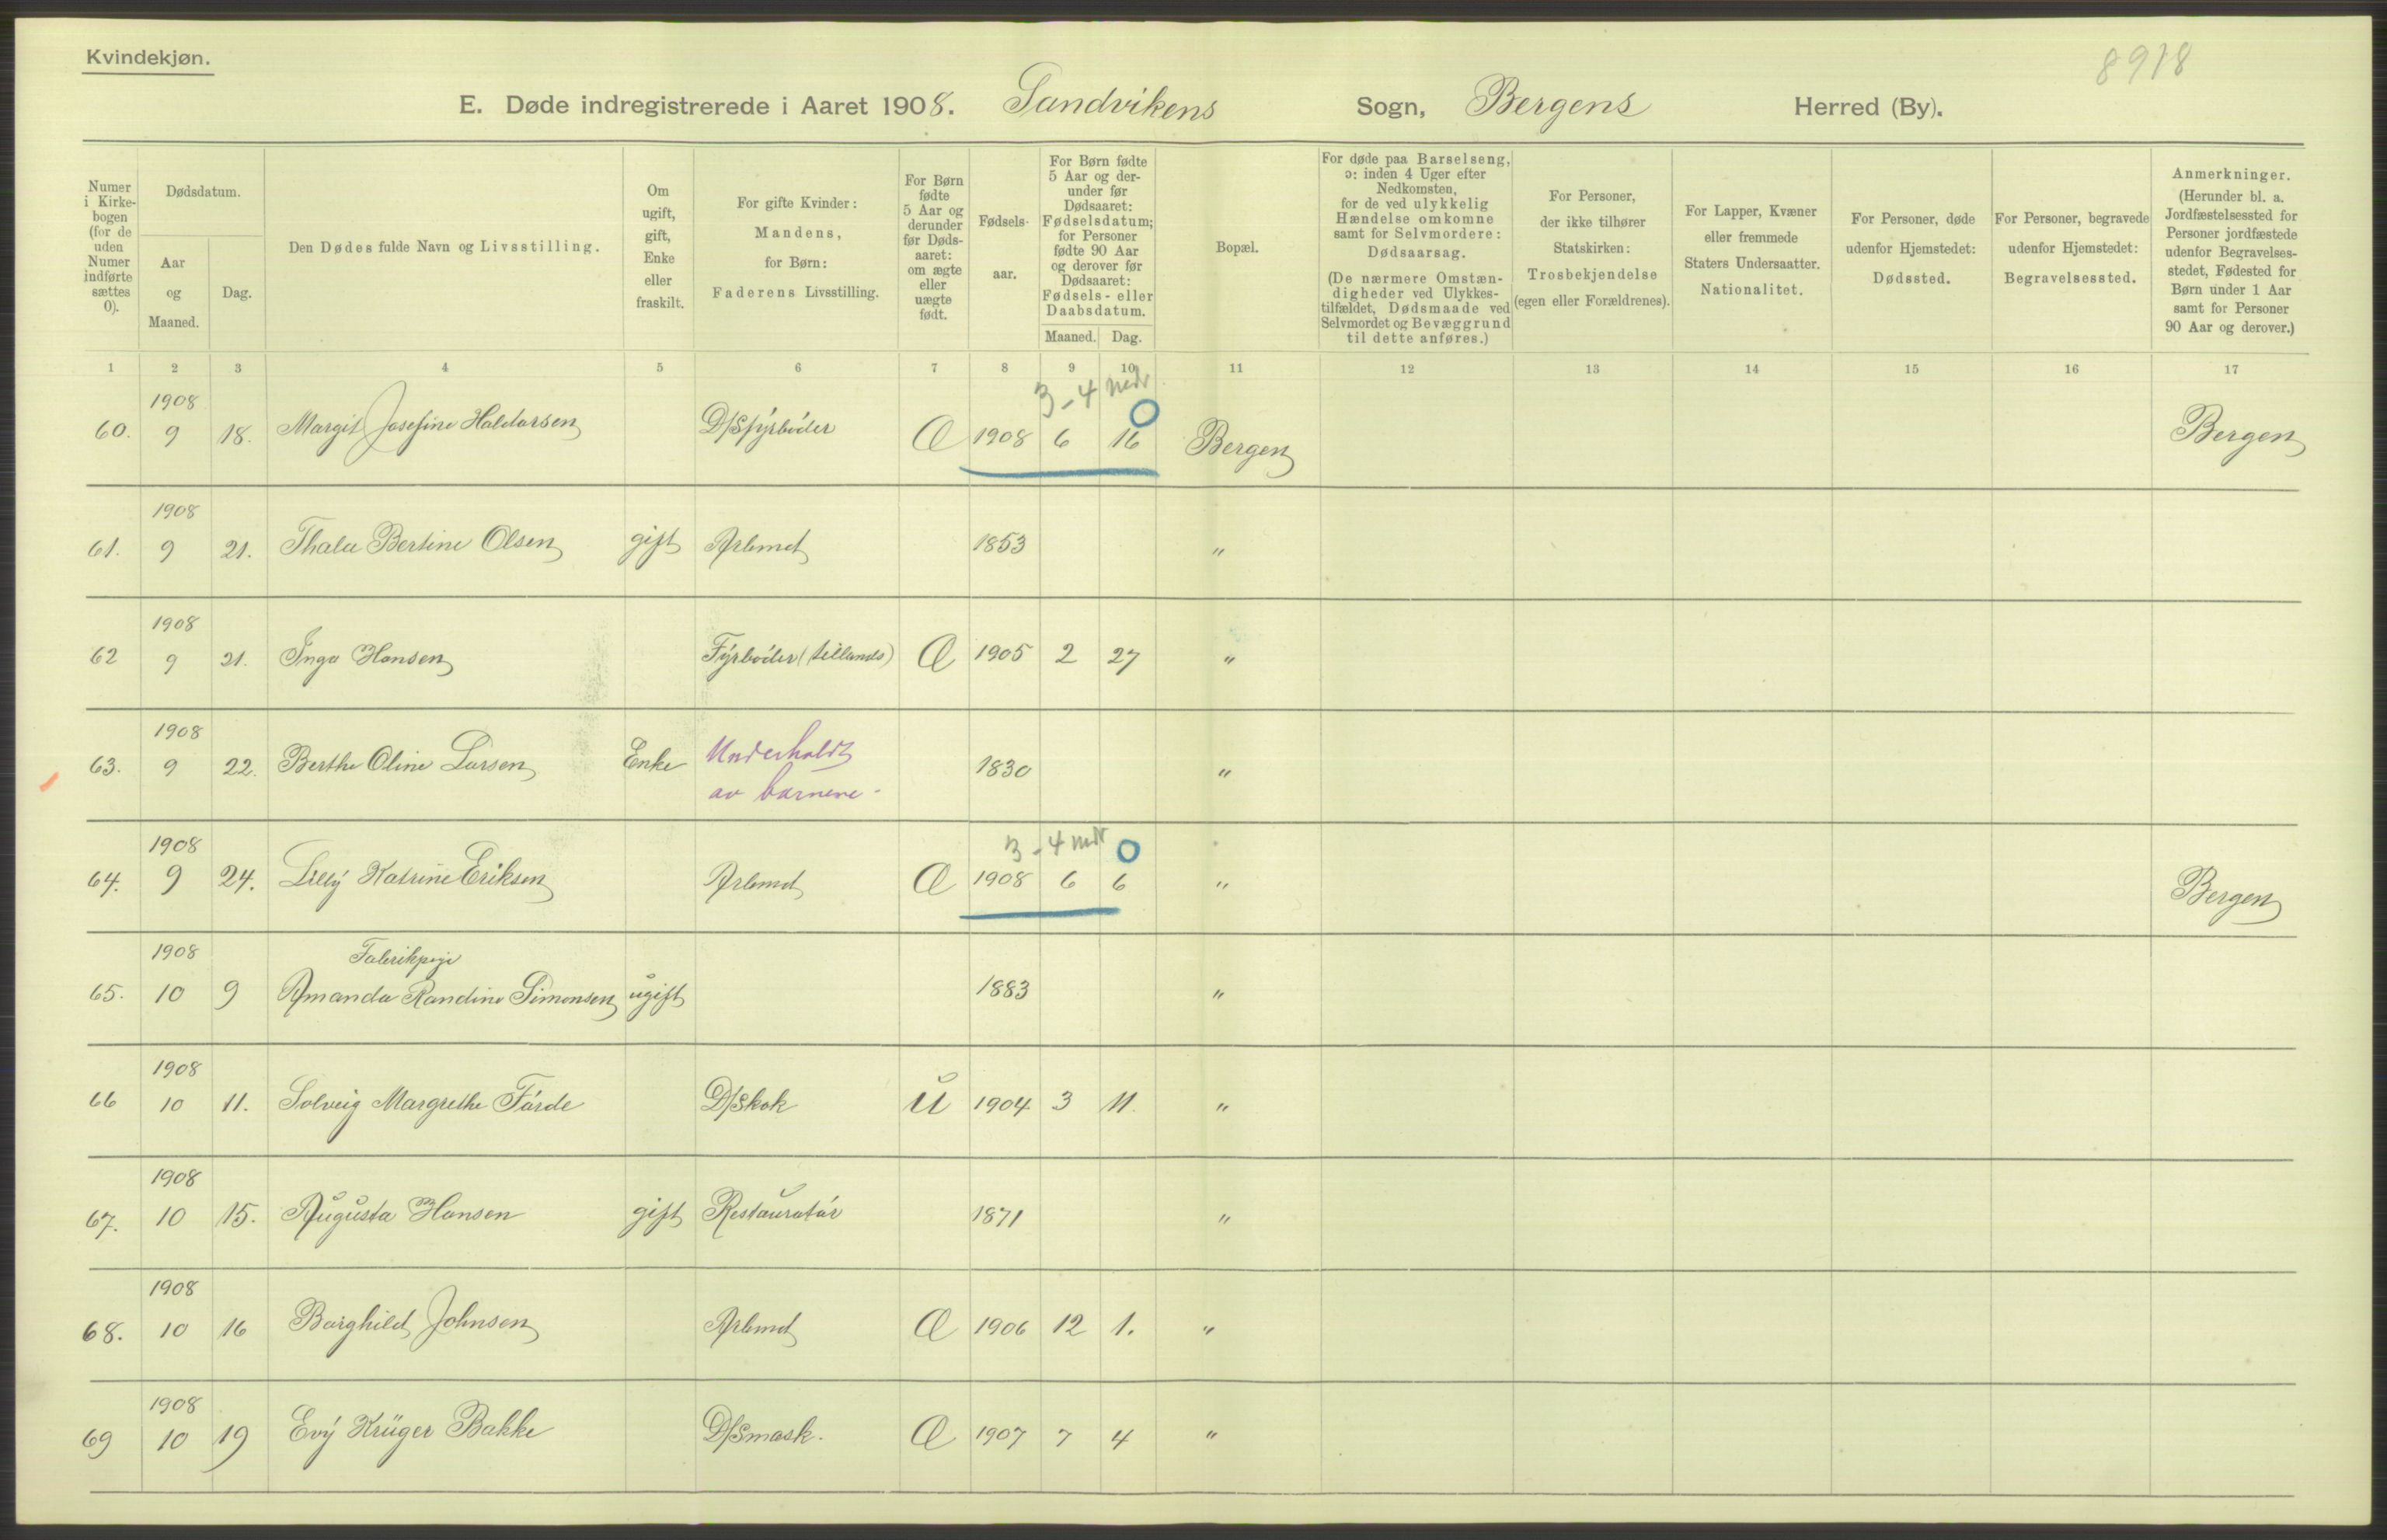 Kvindekjøn.
8918
E. Døde indregistrerede i Aaret 1908. Sandvikens Sogn, Bergens Herred (By).
Numer i Kirke-bogen (for de uden Numer indførte sættes 0).
Dødsdatum.
Aar og Maaned.
Dag.
Den Dødes fulde Navn og Livsstilling.
Om ugift, gift, Enke eller fraskilt.
For gifte Kvinder: Mandens, for Børn: Faderens Livsstilling.
For Børn fødte 5 Aar og derunder før Døds-aaret: om ægte eller uægte født.
Fødsels-aar.
For Børn fødte 5 Aar og der-under før Dødsaaret: Fødselsdatum; for Personer fødte 90 Aar og derover før Dødsaaret: Fødsels- eller Daabsdatum.
Maaned. Dag.
Bopæl.
For døde paa Barselseng, ɔ: inden 4 Uger efter Nedkomsten, for de ved ulykkelig Hændelse omkomne samt for Selvmordere: Dødsaarsag. (De nærmere Omstæn-digheder ved Ulykkes-tilfældet, Dødsmaade ved Selvmordet og Bevæggrund til dette anføres.)
For Personer, der ikke tilhører Statskirken: Trosbekjendelse (egen eller Forældrenes).
For Lapper, Kvæner eller fremmede Staters Undersaatter. Nationalitet.
For Personer, døde udenfor Hjemstedet: Dødssted.
For Personer, begravede udenfor Hjemstedet: Begravelsessted.
Anmerkninger. (Herunder bl. a. Jordfæstelsessted for Personer jordfæstede udenfor Begravelses-stedet, Fødested for Børn under 1 Aar samt for Personer 90 Aar og derover.)
1 2 3 4 5 6 7 8 9 10 11 12 13 14 15 16 17
1908 3-4 mdr 0
60. 9 18. Margit Josefine Haldorsen D/Sfyrbøder Æ 1908 6 16 Bergen Bergen
1908
61. 9 21. Thala Bertine Olsen gift Arbmd 1853 "
1908
62 9 21. Inga Hansen Fyrbøder (tillands) Æ 1905 2 27 "
1908
63. 9 22. Berthe Oline Larsen Enke Underholdt av barnene - 1830 "
1908 3-4 mdr 0
64. 9 24. Lilly Katrine Eriksen Arbmd Æ 1908 6 6 " Bergen
1908 Fabrikpige
65. 10 9 Amanda Randine Simonsen ugift 1883 "
1908
66 10 11. Solveig Margrethe Førde D/Skok U 1904 3 11. "
1908
67. 10 15. Augusta Hansen gift Restauratør 1871 "
1908
68. 10 16 Borghild Johnsen Arbmd Æ 1906 12 1. "
1908
69 10 19 Evy Krüger Bakke D/Smask. Æ 1907 7 4 "